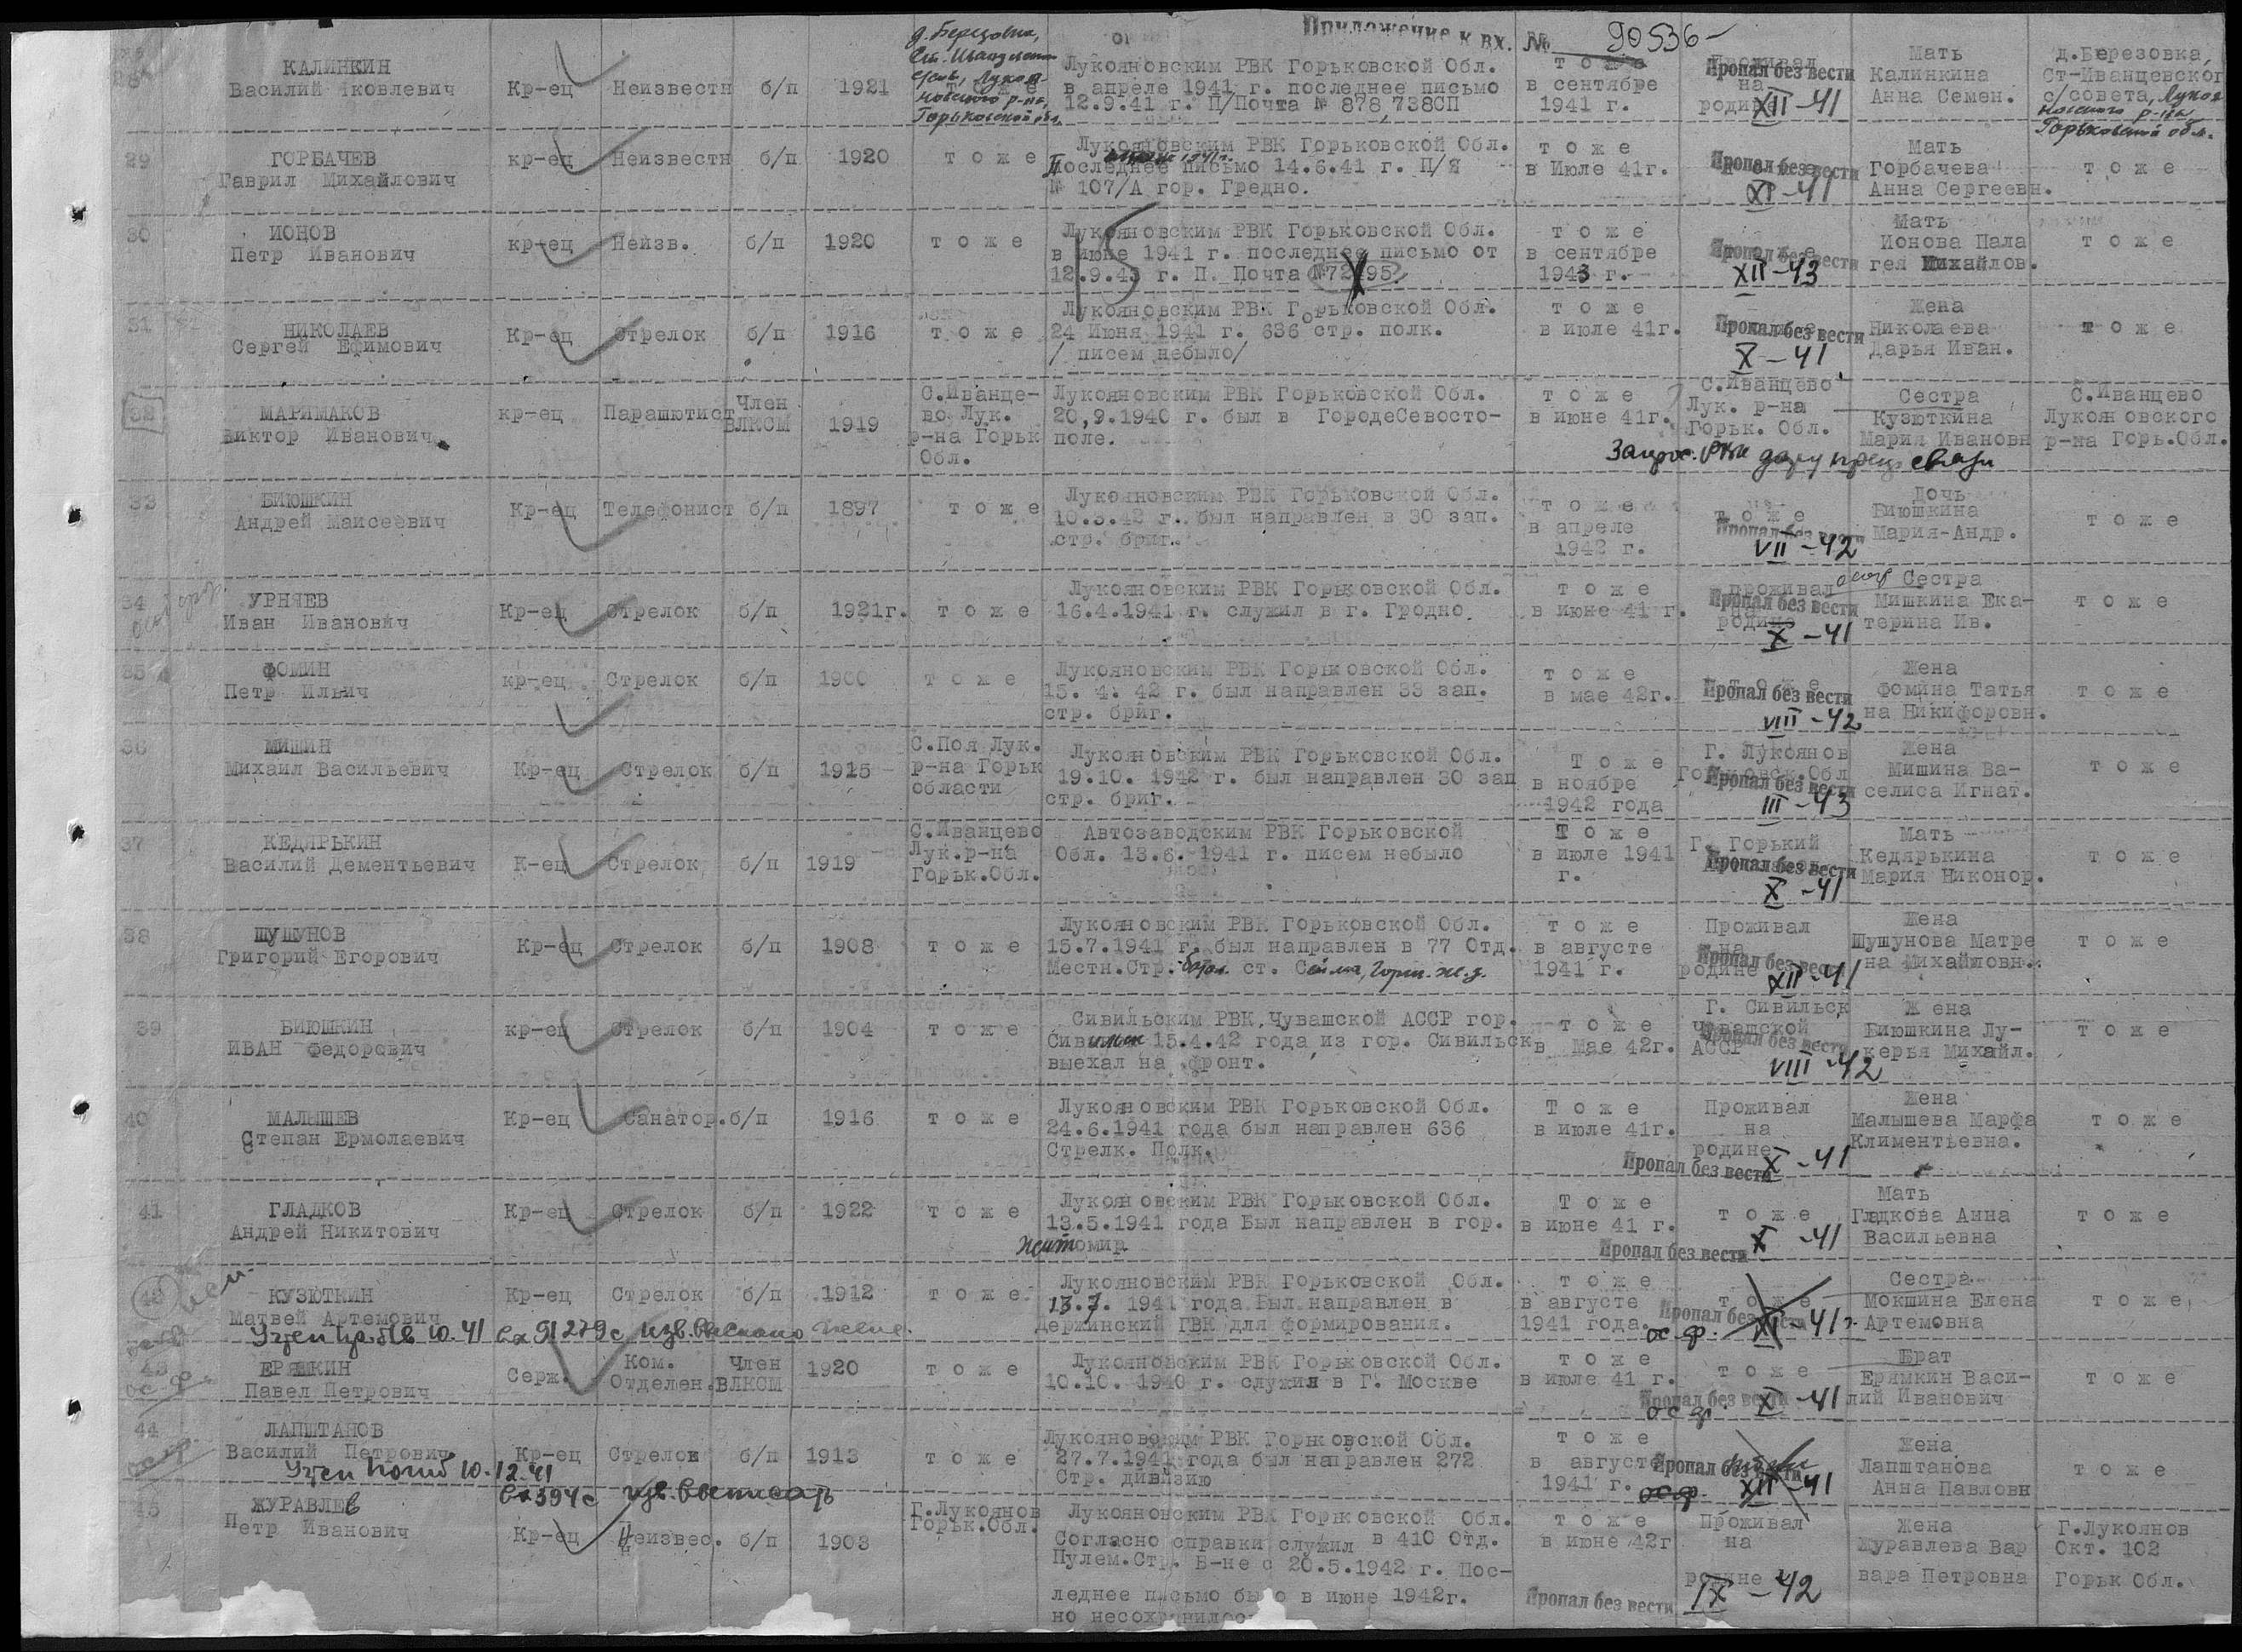 Приложение к вх. № 90536-
28
КАЛИНКИН
Василий Яковлевич
Кр-ец
Неизвестн
б/п
1921
д. Березовка,
Ст. Иванцевск
с/сов, Лукоя-
новского р-на,
Горьковской обл.
тоже
Лукояновским РВК Горьковской Обл.
в апреле 1941 г. последнее письмо
12.9.41 г. П/Почта № 878,738СП
тоже
в сентябре
1941 г.
Проживал
на
родине
Пропал без вести
XII-41
Мать
Калинкина
Анна Семен.
д.Березовка,
Ст-Иванцевског
с/совета, Лукоя
новского р-на
Горьковской обл.
29
ГОРБАЧЕВ
Гаврил Михайлович
кр-ец
Неизвестн
б/п
1920
тоже
Лукояновским РВК Горьковской Обл.
Последнее письмо 14.6.41 г. П/Я
№ 107/А гор. Гредно.
тоже
в Июле 41г.
Пропал без вести
XI-41
Мать
Горбачева
Анна Сергеевн.
тоже
30
ИОНОВ
Петр Иванович
кр-ец
Неизв.
б/п
1920
тоже
Лукояновским РВК Горьковской Обл.
в июне 1941 г. последнее письмо от
12.9.43 г. П. Почта №72195
тоже
в сентябре
1943 г.
Пропал без вести
XII-43
Мать
Ионова Пала
гея Михайлов.
тоже
31
НИКОЛАЕВ
Сергей Ефимович
Кр-ец
Стрелок
б/п
1916
тоже
Лукояновским РВК Горьковской Обл.
24 Июня 1941 г. 636 стр. полк.
/ писем небыло/
тоже
в июле 41г.
Пропал без вести
X-41
Жена
Николаева
Дарья Иван.
тоже
32
МАРИМАКОВ
Виктор Иванович
кр-ец
Парашютист
Член
ВЛКСМ
1919
С.Иванце-
во Лук.
р-на Горьк
Обл.
Лукояновским РВК Горьковской Обл.
20,9.1940 г. был в ГородеСевосто-
поле.
тоже
в июне 41г.
С.Иванцево
Лук. р-на
Горьк. Обл.
Сестра
Кузюткина
Мария Ивановн
С.Иванцево
Лукояновского
р-на Горь.Обл.
33
БИЮШКИН
Андрей Маисеевич
Кр-ец
Телефонист
б/п
1897
тоже
Лукояновским РВК Горьковской Обл.
10.3.42 г. был направлен в 30 зап.
стр. бриг.
тоже
в апреле
1942 г.
тоже
Пропал без вести
VII-42
Дочь
Биюшкина
Мария-Андр.
тоже
34
УРНЯЕВ
Иван Иванович
Кр-ец
Стрелок
б/п
1921г.
тоже
Лукояновским РВК Горьковской Обл.
16.4.1941 г. служил в г. Гродно.
тоже
в июне 41 г.
проживал
на
родине
Пропал без вести
X-41
Сестра
Мишкина Ека-
терина Ив.
тоже
35
ФОМИН
Петр Ильич
кр-ец
Стрелок
б/п
1900
тоже
Лукояновским РВК Горьковской Обл.
15. 4. 42 г. был направлен 33 зап.
стр. бриг.
тоже
в мае 42г.
тоже
Пропал без вести
VIII-42
Жена
Фомина Татья
на Никифоровн.
тоже
36
МИШИН
Михаил Васильевич
Кр-ец
Стрелок
б/п
1915
С.Поя Лук.
р-на Горьк
области
Лукояновским РВК Горьковской Обл.
19.10. 1942 г. был направлен 30 зап
стр. бриг.
Тоже
в ноябре
1942 года
Г. Лукоянов
Горьковск.Обл
Пропал без вести
III-43
Жена
Мишина Ва-
селиса Игнат.
тоже
37
КЕДЯРЬКИН
Василий Дементьевич
К-ец
Стрелок
б/п
1919
С.Иванцево
Лук.р-на
Горьк.Обл.
Автозаводским РВК Горьковской
Обл. 13.6. 1941 г. писем небыло
Тоже
в июле 1941
г.
Г. Горький
Пропал без вести
X-41
Мать
Кедярькина
Мария Никонор.
тоже
38
ШУШУНОВ
Григорий Егорович
Кр-ец
Стрелок
б/п
1908
тоже
Лукояновским РВК Горьковской Обл.
15.7.1941 г. был направлен в 77 Отд.
Местн.Стр. батал. ст. Сейма, Горьк. ж.д.
тоже
в августе
1941 г.
Проживал
на
родине
Пропал без вести
XII-41
Жена
Шушунова Матре
на Михайловн.
тоже
39
БИЮШКИН
ИВАН Федорович
кр-ец
Стрелок
б/п
1904
тоже
Сивильским РВК,Чувашской АССР гор.
Сивильск 15.4.42 года из гор. Сивильск
выехал на фронт.
тоже
в Мае 42г.
Г. Сивильск
Чувашской
АССР
Пропал без вести
VIII-42
Жена
Биюшкина Лу-
керья Михайл.
тоже
40
МАЛЫШЕВ
Степан Ермолаевич
Кр-ец
Санатор.
б/п
1916
тоже
Лукояновским РВК Горьковской Обл.
24.6.1941 года был направлен 636
Стрелк. Полк.
Тоже
в июле 41г.
Проживал
на
родине
Пропал без вести
X-41
Жена
Малышева Марфа
Климентьевна.
тоже
41
ГЛАДКОВ
Андрей Никитович
Кр-ец
Стрелок
б/п
1922
тоже
Лукояновским РВК Горьковской Обл.
13.5.1941 года Был направлен в гор.
Житомир
Тоже
в июне 41 г.
тоже
Пропал без вести
X-41
Мать
Гладкова Анна
Васильевна
тоже
42
КУЗЮТКИН
Матвей Артемович
Кр-ец
Стрелок
б/п
1912
тоже
Лукояновским РВК Горьковской Обл.
13.7. 1941 года Был направлен в
Держинский ГВК для формирования.
тоже
в августе
1941 года.
тоже
Пропал без вести
XII-41г.
Сестра
Мокшина Елена
Артемовна
тоже
43
ЕРЯШКИН
Павел Петрович
Серж.
Ком.
Отделен.
Член
ВЛКСМ
1920
тоже
Лукояновским РВК Горьковской Обл
10.10. 1940 г. служил в Г. Москве
тоже
в июле 41 г.
тоже
Пропал без вести
XI-41
Брат
Ерямкин Васи-
лий Иванович
тоже
44
ЛАПШТАНОВ
Василий Петрович
Кр-ец
Стрелок
б/п
1913
тоже
Лукояновским РВК Горьковской Обл.
27.7.1941 года был направлен 272
Стр. дивизию
тоже
в августе
1941 г.
Пропал без вести
XII-41
Жена
Лапштанова
Анна Павловн
тоже
Учтен погиб 10.12.41
45
ЖУРАВЛЕВ
Петр Иванович
Кр-ец
Неизвес.
б/п
1903
Г.Лукоянов
Горьк.Обл.
Лукояновским РВК Горьковской Обл.
Согласно справки служил в 410 Отд.
Пулем.Стр. Б-не с 20.5.1942 г. Пос-
леднее письмо было в июне 1942г.
но несохранилось
тоже
в июне 42г
Проживал
на
родине
Пропал без вести
IX-42
Жена
Журавлева Вар
вара Петровна
Г.Лукоянов
Окт. 102
Горьк Обл.